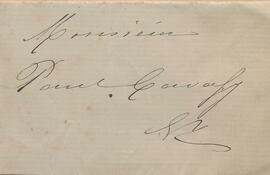 Monsieur
Paul Cavafy